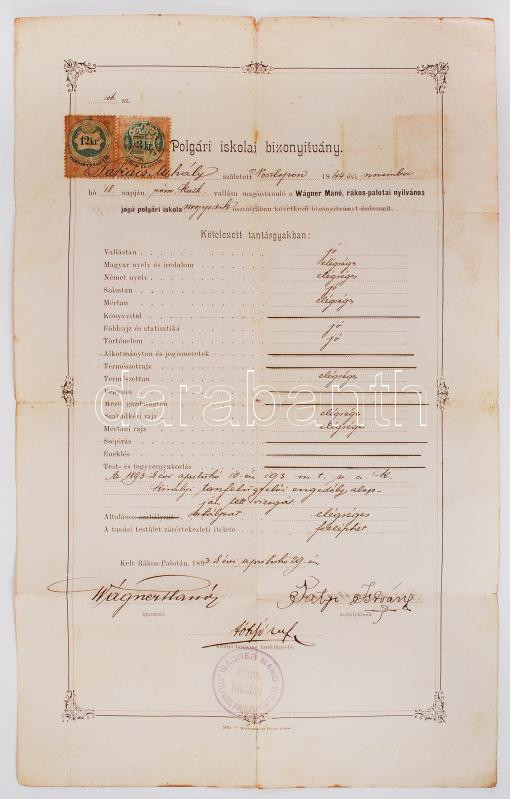 sz.
12 kr.
3 kr.
Polgári iskolai bizonyitvány.
Takács Mihály született 1844 évi november
hó 18 napján, róm. kath. vallásu magántanuló a Wágner Manó, rákos-palotai nyilvános
jogú polgári iskola negyedik osztályában következő bizonyitványt érdemelt.
Kötelezett tantárgyakban:
Vallástan jó
Magyar nyelv és irodalom elégséges
Német nyelv elégséges
Számtan jó
Mértan elégséges
Könyvvitel
Földrajz és statisztika jó
Történelem jó
Alkotmánytan és jogismeretek
Természetrajz
Természettan elégséges
Vegytan
Mezei gazdaságtan
Szabadkézi rajz elégséges
Mértani rajz elégséges
Szépirás
Éneklés
Test- és fegyvergyakorlás
Az 1893 évi április hó 10-én 193 m. t. u. a. k.
királyi tanfelügyelői engedély alap-
ján tett vizsgát.
Általános osztályzat elégséges
A tanári testület zárértekezleti itélete feleléphet
Kelt Rákos-Palotán, 1893 évi április hó 29-én
Wágner Manó
igazgató.
István
osztályfőnök.
WÁGNER MANÓ
darabanth